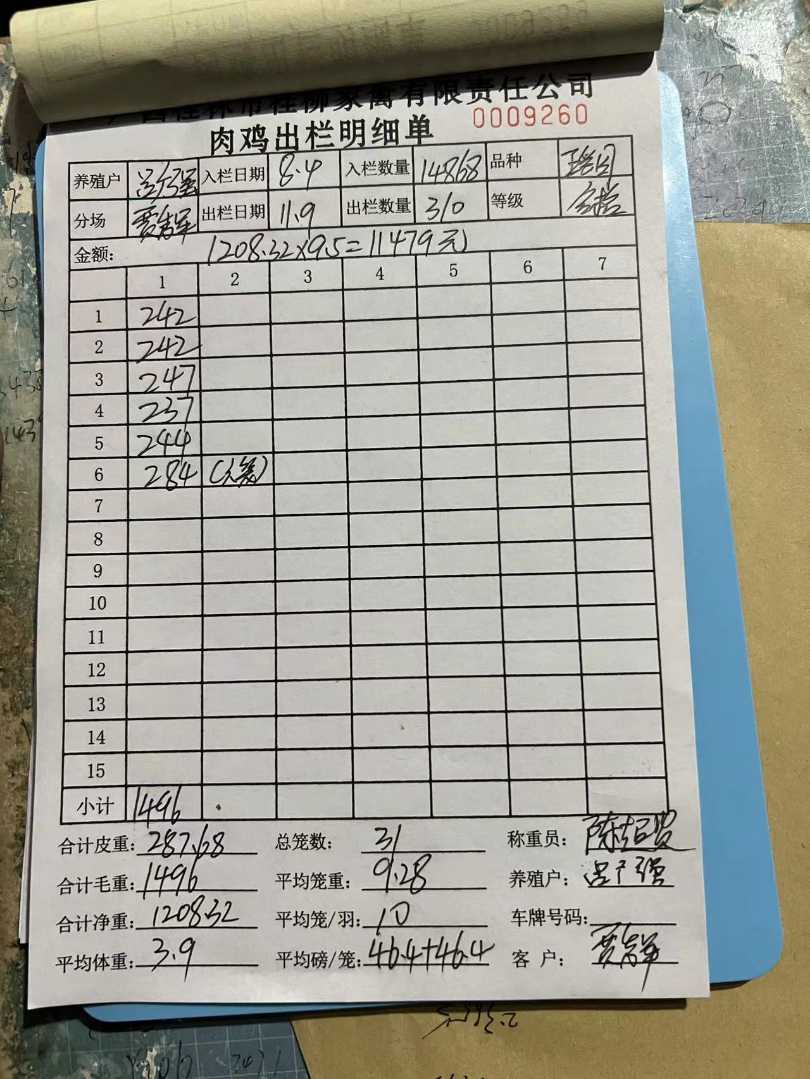 西桂林市桂柳家禽有限责任公司
肉鸡出栏明细单 0009260
养殖户 吕广强 入栏日期 8.4 入栏数量 14868 品种
分场 出栏日期 11.9 出栏数量 310 等级
金额: 1208.32×9.5=11479元
1 2 3 4 5 6 7
1 242
2 242
3 247
4 237
5 244
6 284
7
8
9
10
11
12
13
14
15
小计 1496
合计皮重: 287.68 总笼数: 31 称重员:
合计毛重: 1496 平均笼重: 9.28 养殖户: 吕广强
合计净重: 1208.32 平均笼/羽: 10 车牌号码:
平均体重: 3.9 平均磅/笼: 46.4+46.4 客 户: